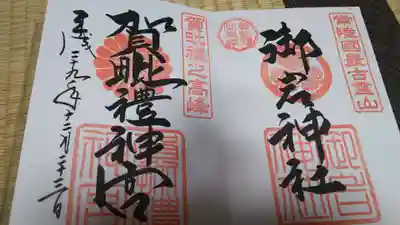 常陸國最古霊山
御岩神社
賀毗禮之高峰
賀毗禮神宮
平成二十九年十二月二十三日